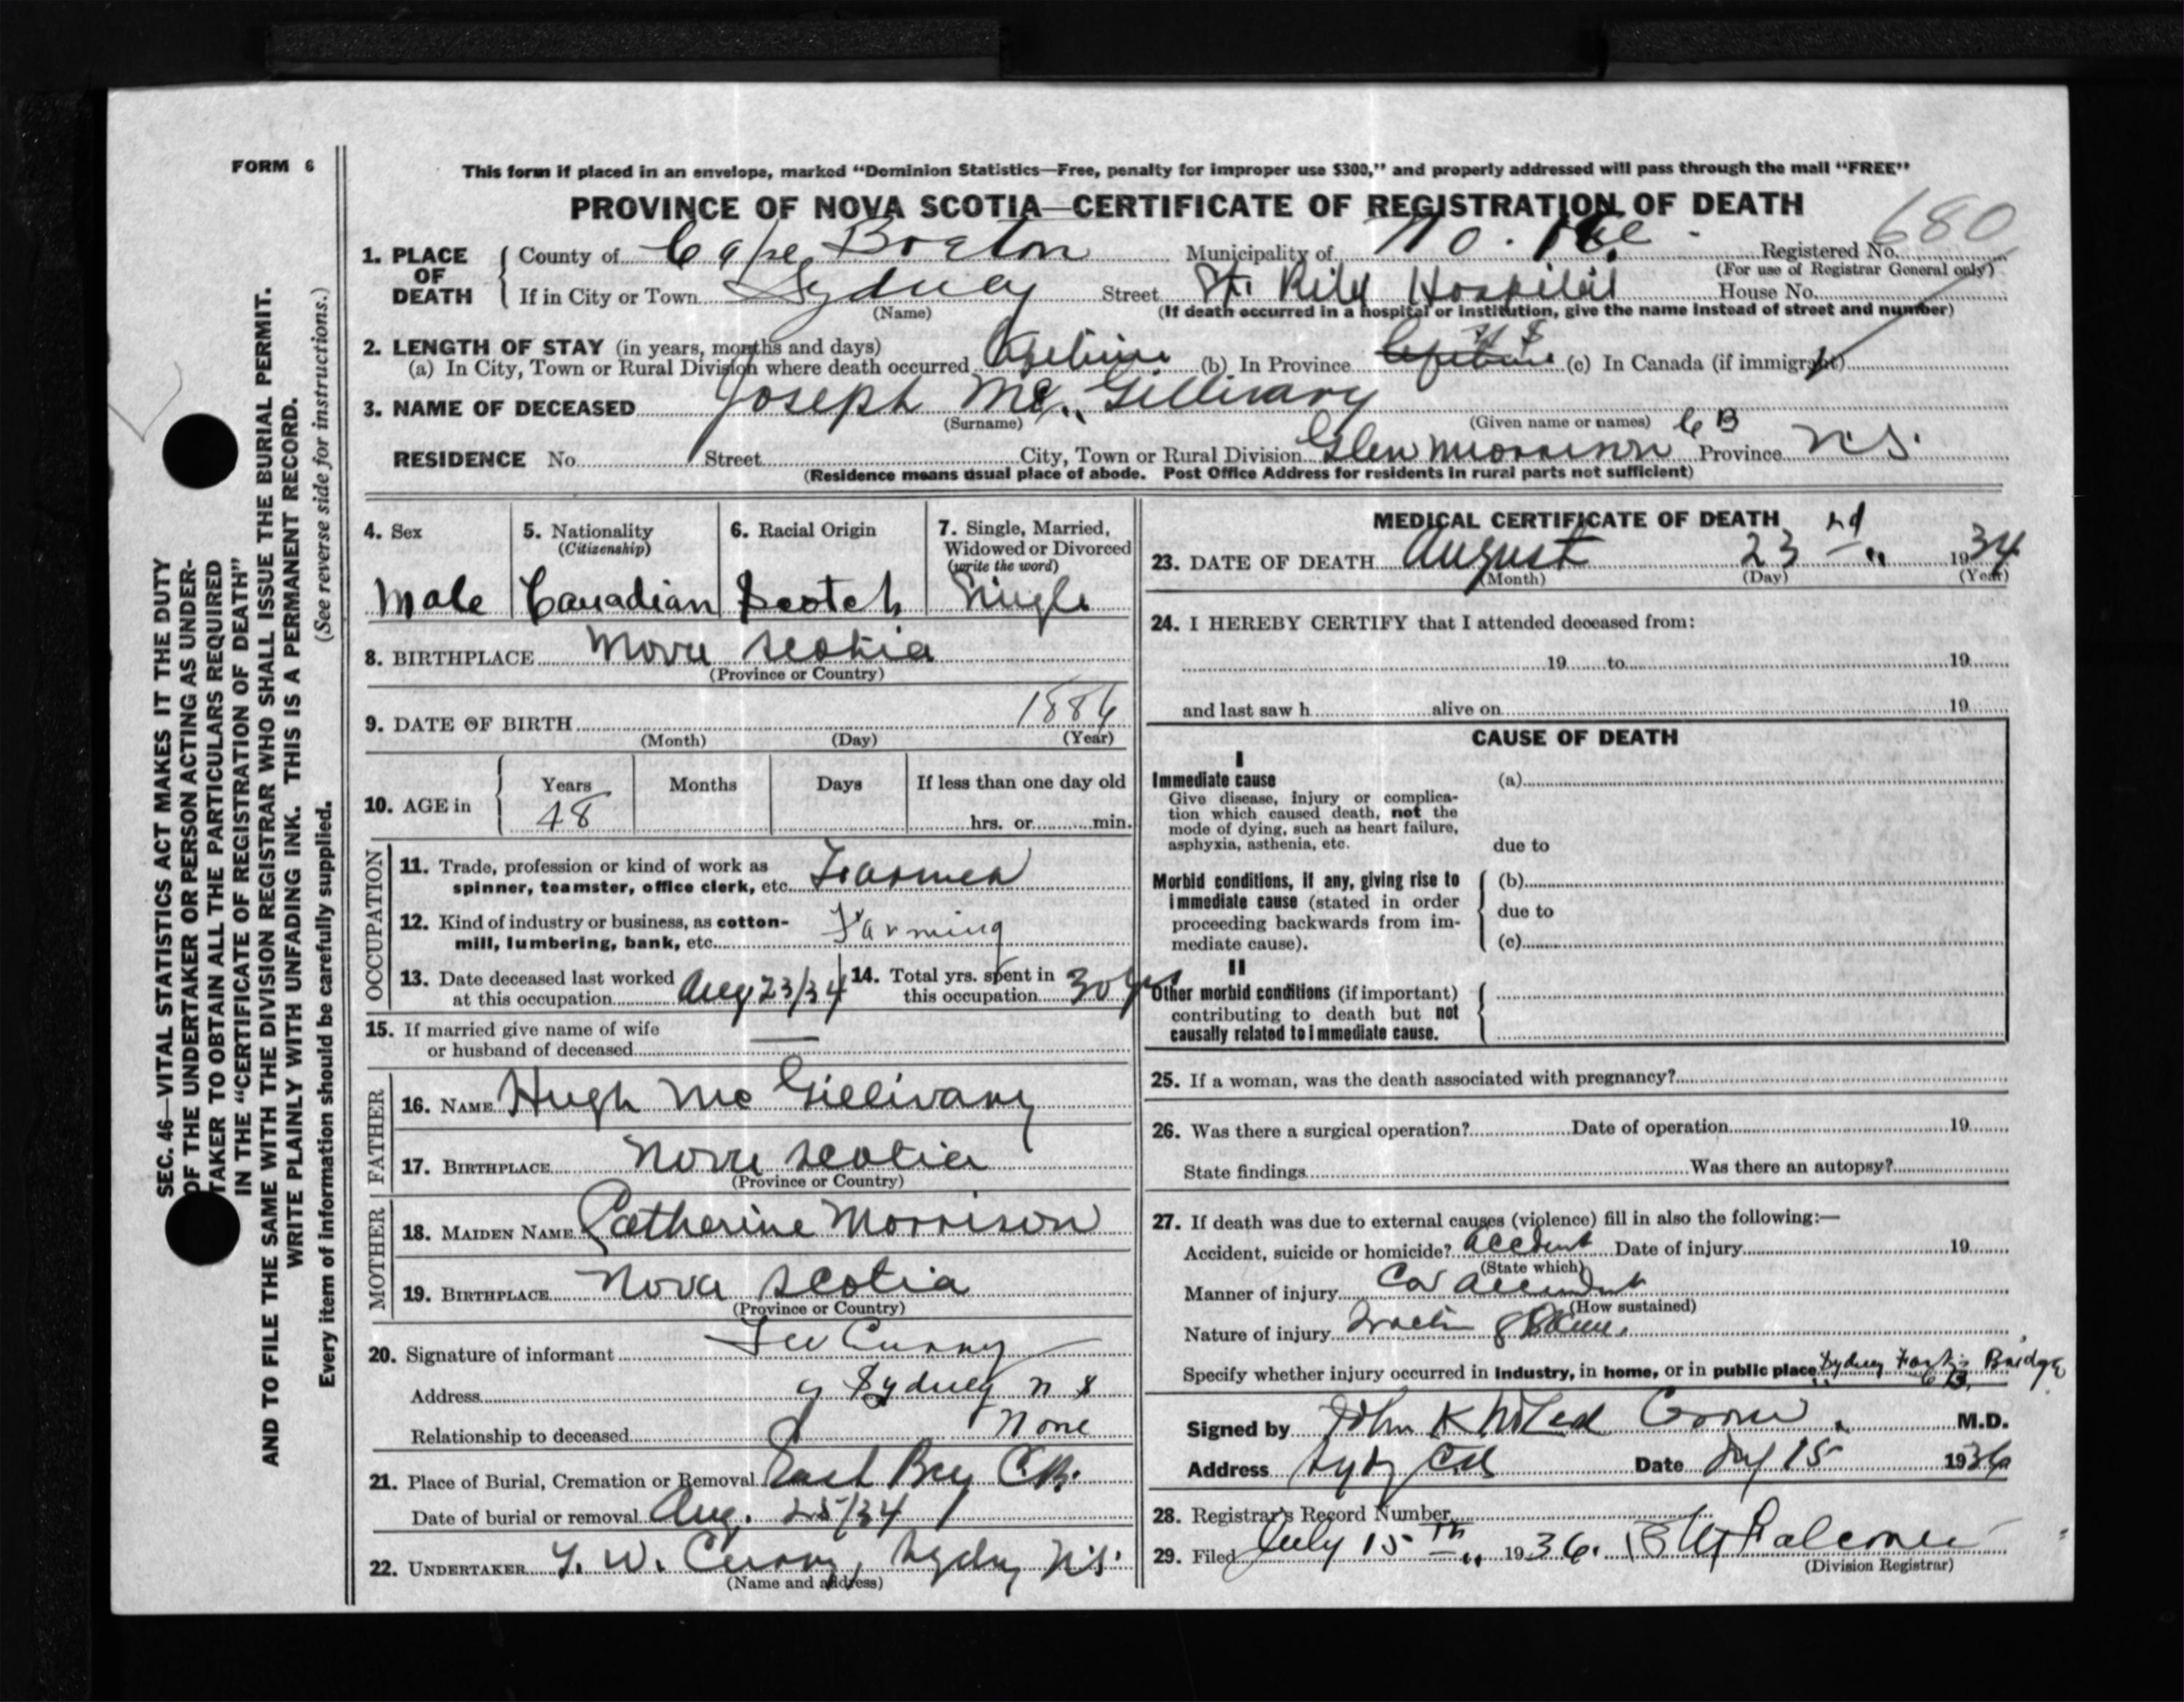 FORM 6
This form if placed in an envelope, marked "Dominion Statistics—Free, penalty for improper use $300," and properly addressed will pass through the mail "FREE"
PROVINCE OF NOVA SCOTIA—CERTIFICATE OF REGISTRATION OF DEATH
680
1. PLACE OF DEATH
County of Cape Breton Municipality of No. Registered No.
(For use of Registrar General only)
If in City or Town Sydney Street St. Rita Hospital House No.
(Name) (If death occurred in a hospital or institution, give the name instead of street and number)
2. LENGTH OF STAY (in years, months and days)
(a) In City, Town or Rural Division where death occurred (b) In Province (c) In Canada (if immigrant)
3. NAME OF DECEASED Joseph Mc. Gillivary
(Surname) (Given name or names) C B
RESIDENCE No. Street City, Town or Rural Division Glen Morrison Province N.S.
(Residence means usual place of abode. Post Office Address for residents in rural parts not sufficient)
4. Sex
Male
5. Nationality
(Citizenship)
Canadian
6. Racial Origin
Scotch
7. Single, Married, Widowed or Divorced
(write the word)
Single
8. BIRTHPLACE Nova Scotia
(Province or Country)
9. DATE OF BIRTH 1886
(Month) (Day) (Year)
10. AGE in
Years Months Days If less than one day old
48 hrs. or min.
OCCUPATION
11. Trade, profession or kind of work as
spinner, teamster, office clerk, etc. Farmer
12. Kind of industry or business, as cotton-
mill, lumbering, bank, etc. Farming
13. Date deceased last worked
at this occupation Aug 23/34
14. Total yrs. spent in
this occupation 30 yrs
15. If married give name of wife
or husband of deceased —
FATHER
16. NAME Hugh Mc Gillivary
17. BIRTHPLACE Nova Scotia
(Province or Country)
MOTHER
18. MAIDEN NAME Catherine Morrison
19. BIRTHPLACE Nova Scotia
(Province or Country)
20. Signature of informant Curry
Address Sydney N S
Relationship to deceased None
21. Place of Burial, Cremation or Removal East Bay C.B.
Date of burial or removal Aug. 25/34
22. UNDERTAKER W. Curry, Sydney N.S.
(Name and address)
MEDICAL CERTIFICATE OF DEATH
23. DATE OF DEATH August 23rd 1934
(Month) (Day) (Year)
24. I HEREBY CERTIFY that I attended deceased from:
19 to 19
and last saw h alive on 19
CAUSE OF DEATH
I
Immediate cause (a)
Give disease, injury or complica-
tion which caused death, not the
mode of dying, such as heart failure,
asphyxia, asthenia, etc. due to
Morbid conditions, if any, giving rise to (b)
immediate cause (stated in order
proceeding backwards from im- due to
mediate cause). (c)
II
Other morbid conditions (if important)
contributing to death but not
causally related to immediate cause.
25. If a woman, was the death associated with pregnancy?
26. Was there a surgical operation? Date of operation 19
State findings Was there an autopsy?
27. If death was due to external causes (violence) fill in also the following:—
Accident, suicide or homicide? Accident Date of injury 19
(State which)
Manner of injury Car Accident
(How sustained)
Nature of injury
Specify whether injury occurred in industry, in home, or in public place Sydney Bridge
C B.
Signed by John K M.D.
Address Date July 15 1936
28. Registrar's Record Number
29. Filed July 15th 1936.
(Division Registrar)
SEC. 46—VITAL STATISTICS ACT MAKES IT THE DUTY
OF THE UNDERTAKER OR PERSON ACTING AS UNDER-
TAKER TO OBTAIN ALL THE PARTICULARS REQUIRED
IN THE "CERTIFICATE OF REGISTRATION OF DEATH"
AND TO FILE THE SAME WITH THE DIVISION REGISTRAR WHO SHALL ISSUE THE BURIAL PERMIT.
WRITE PLAINLY WITH UNFADING INK. THIS IS A PERMANENT RECORD.
Every item of information should be carefully supplied. (See reverse side for instructions.)